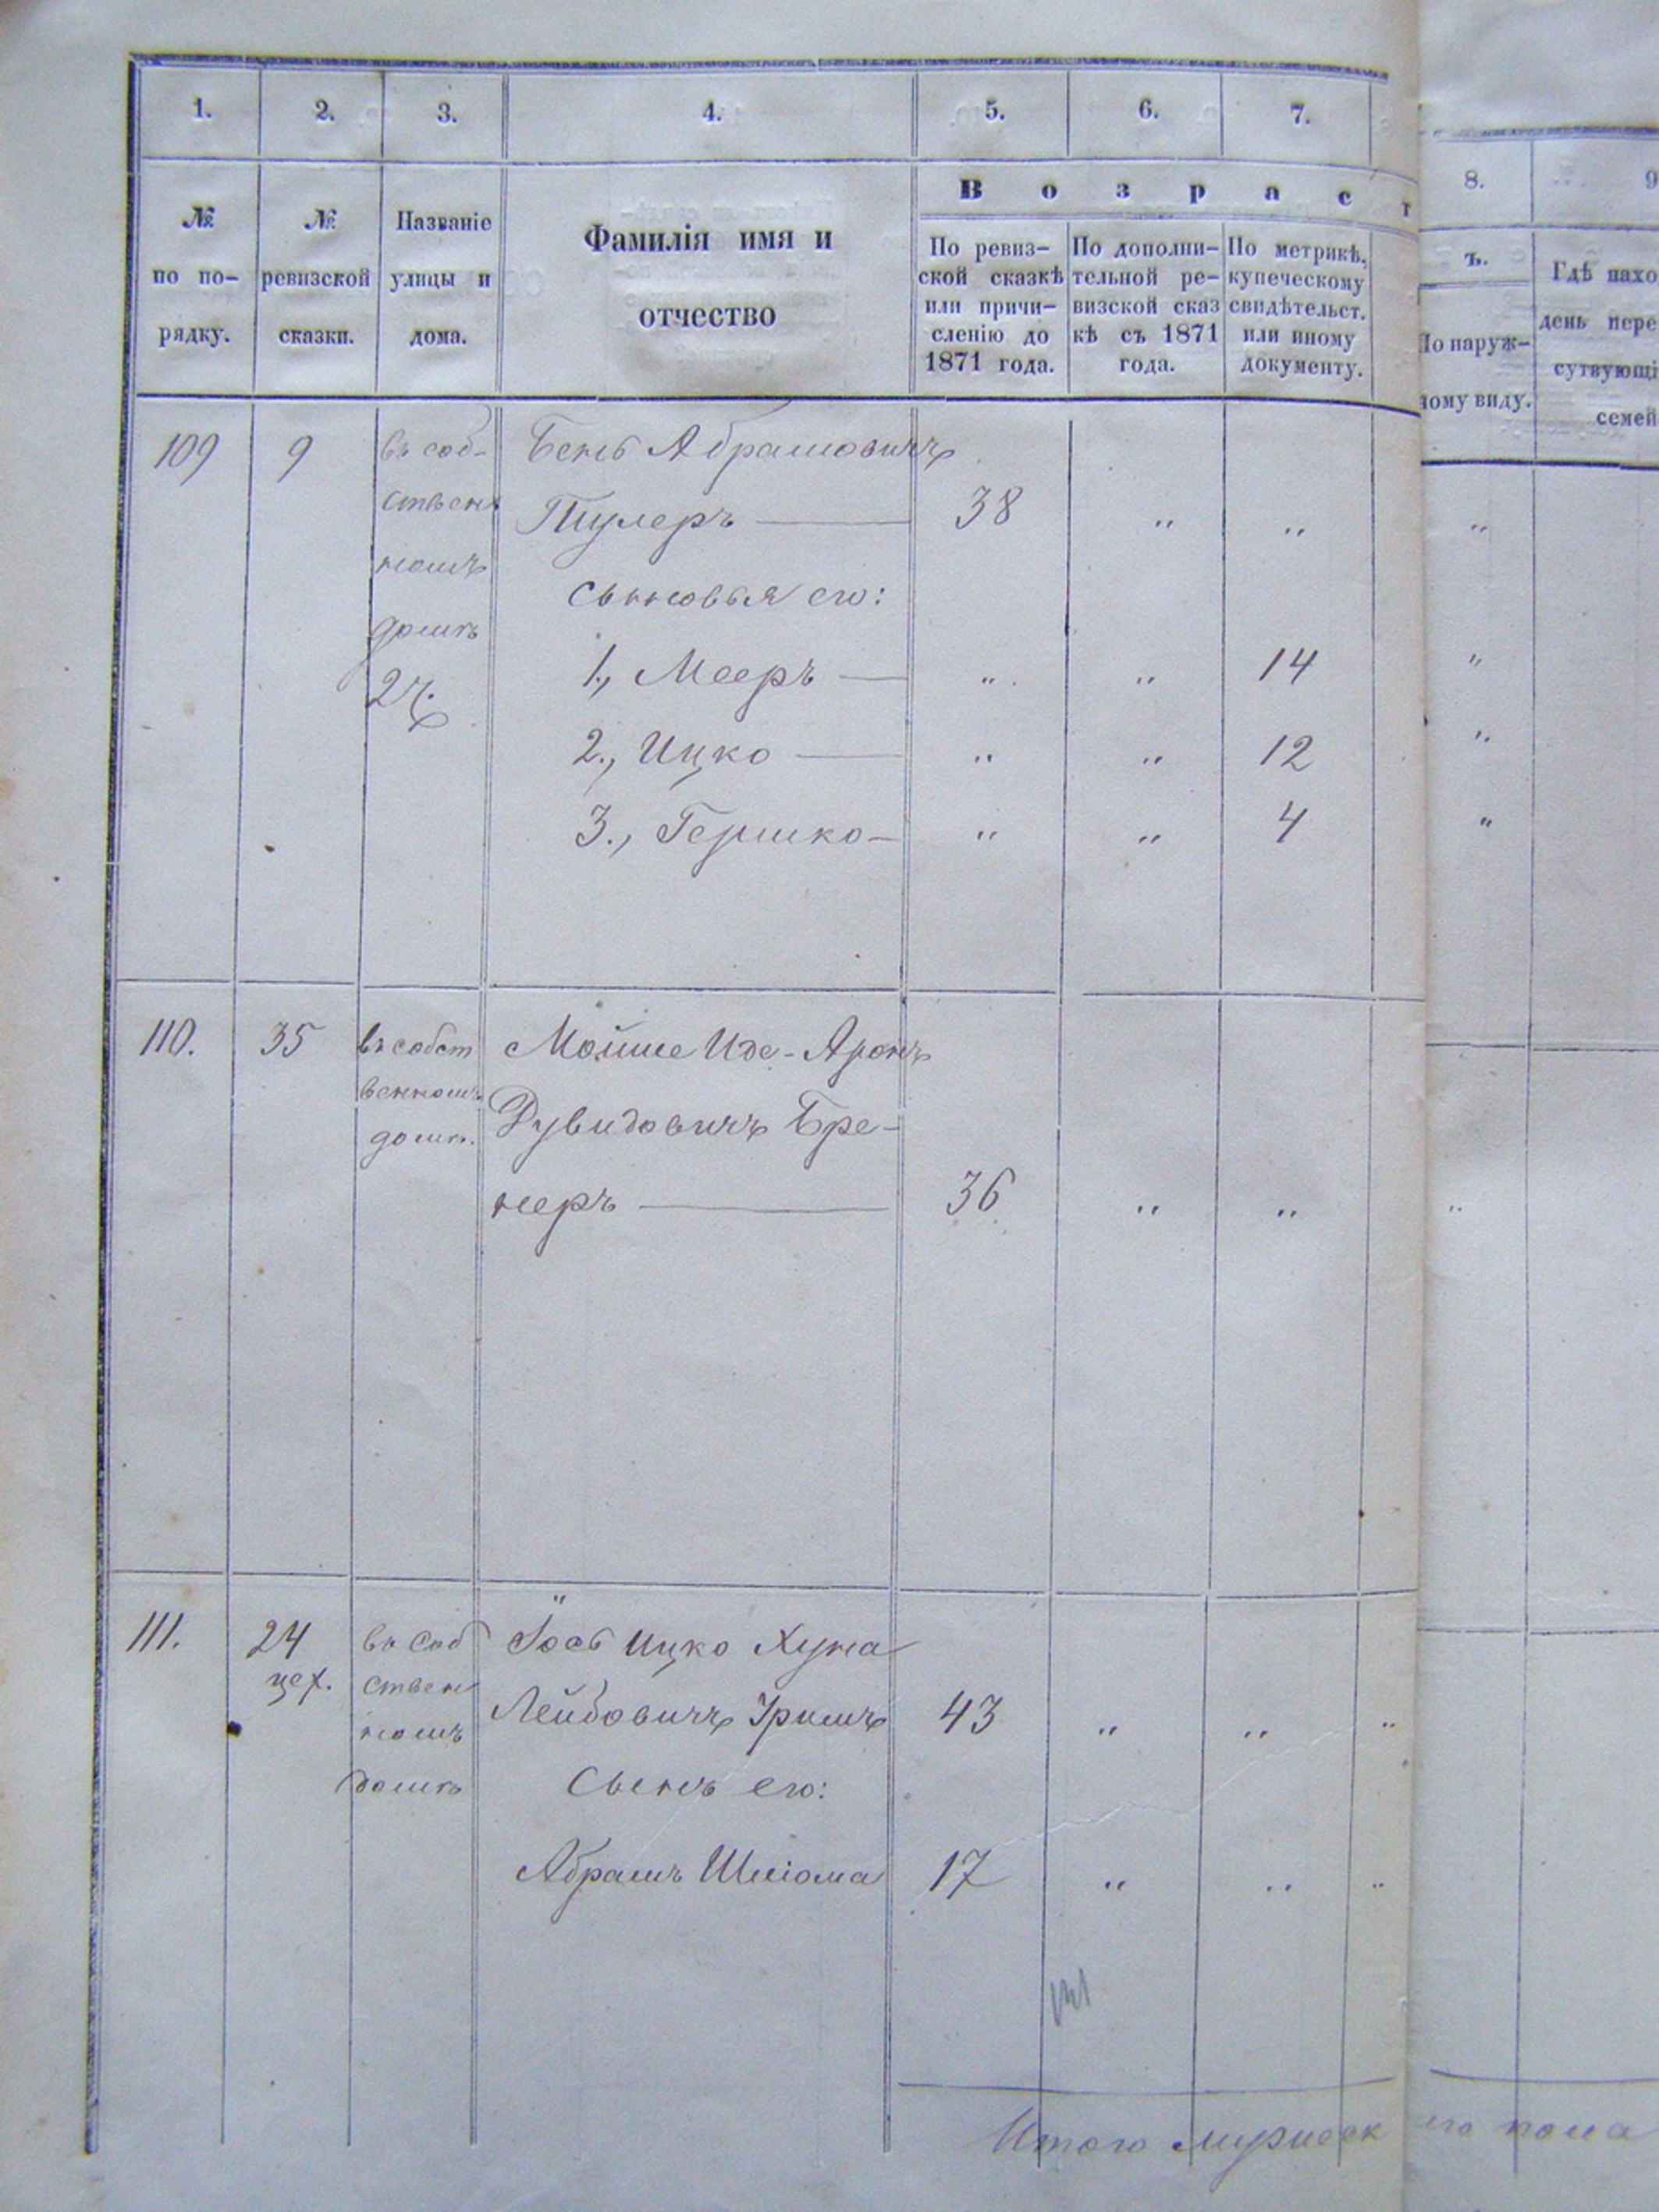 1. 2. 3. 4. 5. 6. 7. 8. 9
№ по по-рядку.
№ ревизской сказки.
Названіе улицы и дома.
Фамилія имя и отчество
Возраст
ъ.
По ревиз-
ской сказкѣ
или причи-
сленію до
1871 года.
По дополни-
тельной ре-
визской сказ
кѣ съ 1871
года.
По метрикѣ,
купеческому
свидѣтельст.
или иному
документу.
По наруж-
ному виду.
Гдѣ нахо
день пере
сутвующі
семей
109 9 въ соб- Бень Абрамовичъ
ствен Тулеръ — 38 „ „ „
номъ сыновья его:
домѣ 1., Мееръ — „ „ 14 „
2., Ицко — „ „ 12 „
3., Гершко — „ „ 4 „
110. 35 въ собст Мойше Иде-Аронъ
венномъ Дувидовичъ Бре-
домѣ. неръ — 36 „ „ „
111. 24 въ соб Іось Ицко Хуна
цех. ствен Лейбовичъ 43 „ „ „
номъ Сынъ его:
домѣ Абрамъ Шліома 17 „ „ „
Итого мужеск его пола